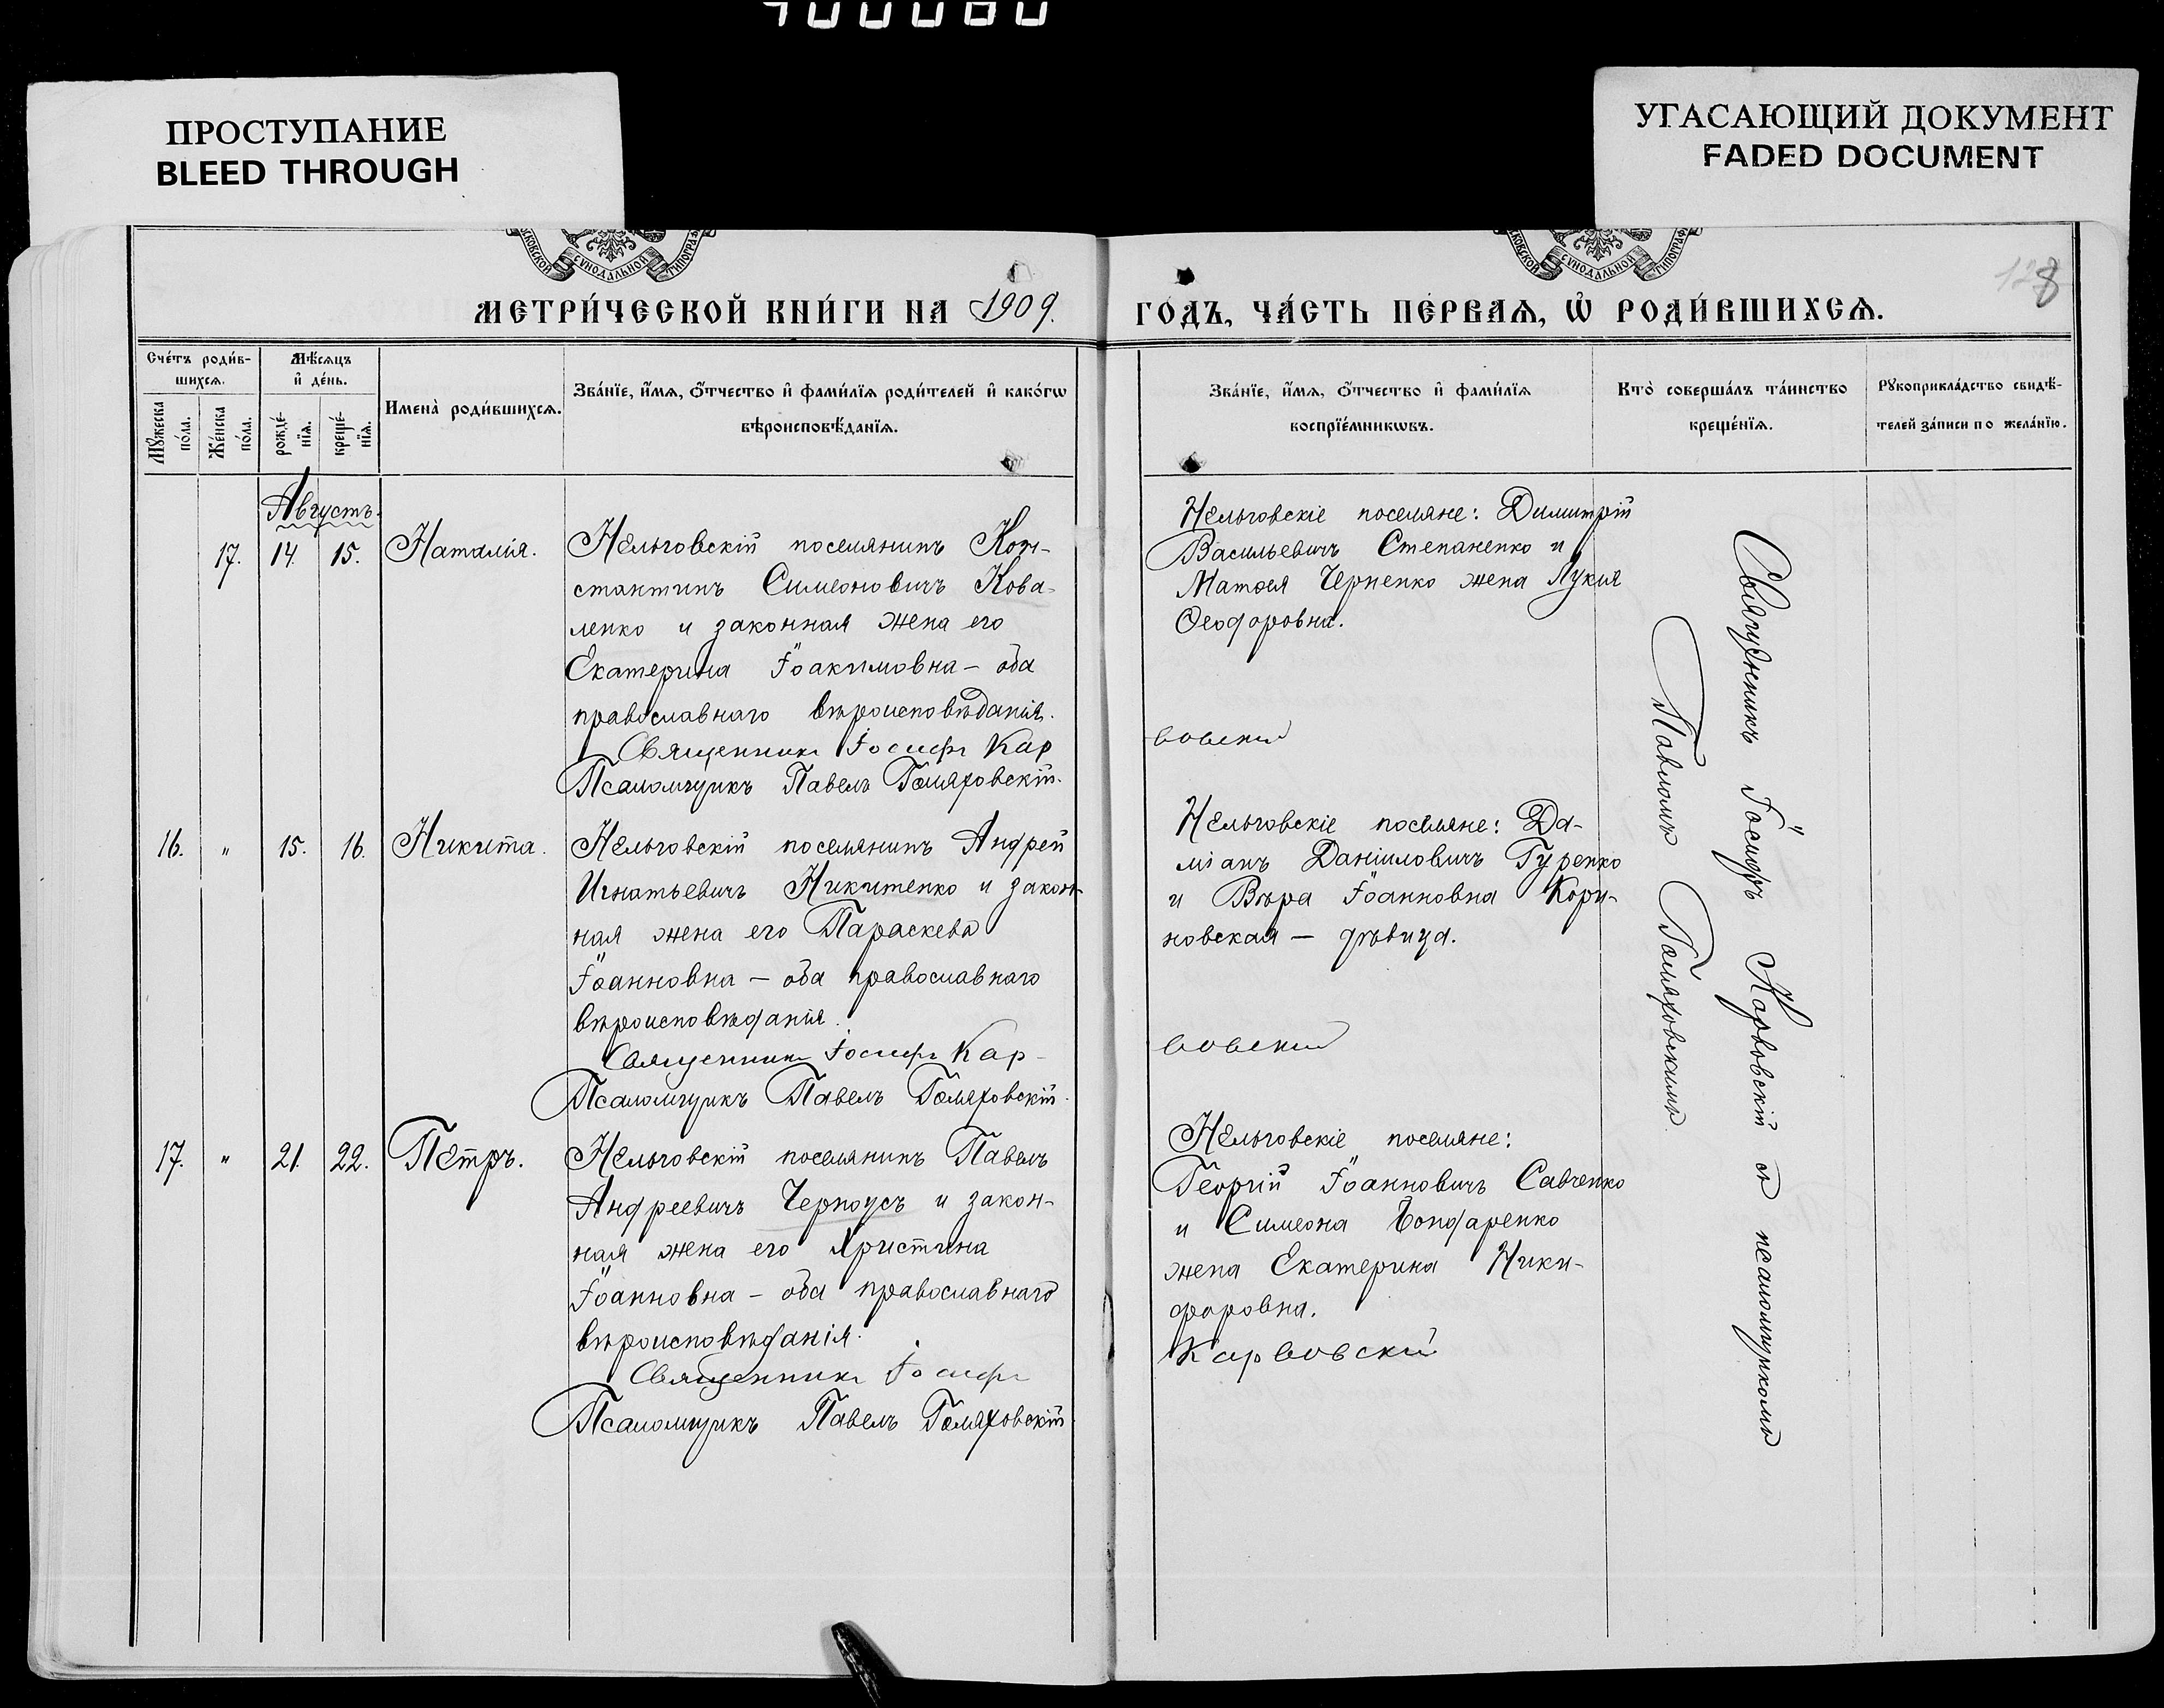 ПРОСТУПАНИЕ
BLEED THROUGH
УГАСАЮЩИЙ ДОКУМЕНТ
FADED DOCUMENT
128
МЕТРИ́ЧЕСКОЙ КНИ́ГИ НА 1909. ГОДЪ, ЧА́СТЬ ПЕ́РВАѦ, Ѡ҆ РОДИ́ВШИХСѦ.
Сче́тъ роди́в-
шихсѧ.
Мꙋ́жеска
по́ла.
Же́нска
по́ла.
Мѣ́сѧцъ
и҆ де́нь.
рожде́-
нїѧ.
креще́-
нїѧ.
Имена̀ роди́вшихсѧ.
Зва́нїе, и҆́мѧ, ѻ҆́тчество и҆ фами́лїѧ роди́телей и҆ како́гѡ
вѣроисповѣ́данїѧ.
Зва́нїе, и҆́мѧ, ѻ҆́тчество и҆ фами́лїѧ
воспрїе́мникѡвъ.
Кто̀ соверша́лъ та́инство
креще́нїѧ.
Рꙋкоприкла́дство свидѣ́-
телей за́писи по жела́нїю.
Августъ.
17. 14. 15. Наталія.
Нельговскій поселянинъ Кон-
стантинъ Симеоновичъ Кова-
ленко и законная жена его
Екатерина Іоакимовна – оба
православнаго вѣроисповѣданія.
Священникъ Іосифъ Кар
вовскій
Псаломщикъ Павелъ Голяховскій.
Нельговскіе поселяне: Димитрій
Васильевичъ Степаненко и
Матѳея Черненко жена Лукія
Ѳеодоровна.
16. " 15. 16. Никита.
Нельговскій поселянинъ Андрей
Игнатьевичъ Никитенко и закон-
ная жена его Параскева
Іоанновна – оба православнаго
вѣроисповѣданія.
Священникъ Іосифъ Кар-
вовскій
Псаломщикъ Павелъ Голяховскій.
Нельговскіе поселяне: Да-
міанъ Даніиловичъ Гуренко
и Вѣра Іоанновна Кори-
новская – дѣвица.
17. " 21. 22. Петръ.
Нельговскій поселянинъ Павелъ
Андреевичъ Черноусъ и закон-
ная жена его Христина
Іоанновна – оба православнаго
вѣроисповѣданія.
Священникъ Іосифъ
Карвовскій
Псаломщикъ Павелъ Голяховскій
Нельговскіе поселяне:
Георгій Іоанновичъ Савченко
и Симеона Бондаренко
жена Екатерина Ники-
форовна.
Священникъ Іосифъ Карвовскій съ псаломщикомъ
Павломъ Голяховскимъ.